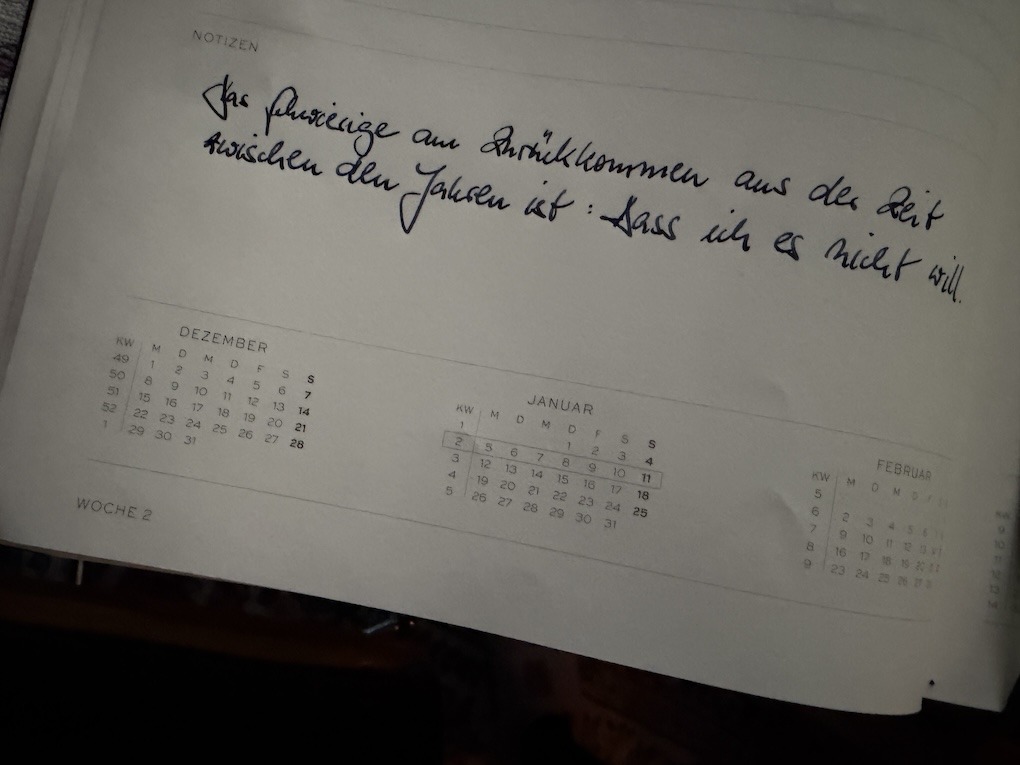 NOTIZEN
Das Schwierige am Zurückkommen aus der Zeit
zwischen den Jahren ist: Dass ich es nicht will.
DEZEMBER
KW M D M D F S S
49 1 2 3 4 5 6 7
50 8 9 10 11 12 13 14
51 15 16 17 18 19 20 21
52 22 23 24 25 26 27 28
1 29 30 31
JANUAR
KW M D M D F S S
1 1 2 3 4
2 5 6 7 8 9 10 11
3 12 13 14 15 16 17 18
4 19 20 21 22 23 24 25
5 26 27 28 29 30 31
FEBRUAR
KW M D M D F
5
6 2 3 4 5 6
7 9 10 11 12 13
8 16 17 18 19 20
9 23 24 25 26 27 28
WOCHE 2